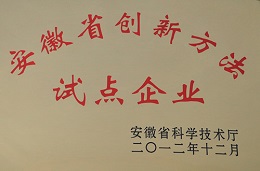 安徽省创新方法
试点企业
安徽省科学技术厅
二〇一二年十二月